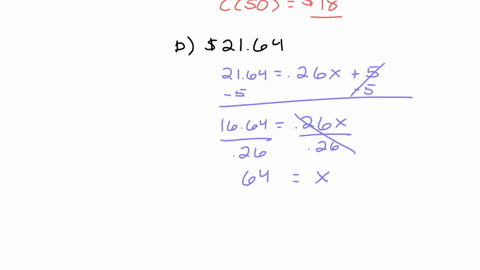 C(50) = $18
b) $21.64
21.64 = .26x + 5
-5 -5
16.64 = .26x
.26 .26
64 = x